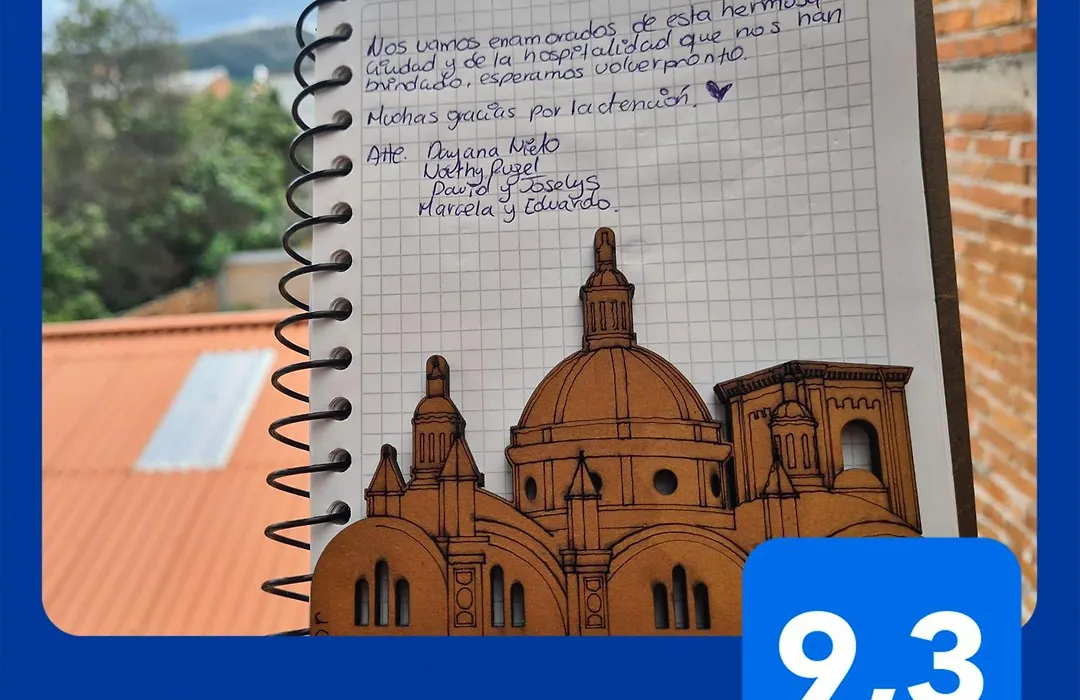 Nos vamos enamorados de esta hermosa
ciudad y de la hospitalidad que nos han
brindado, esperamos volver pronto.
Muchas gracias por la atención.
Atte. Dayana Nieto
Nathy Pugel
David y Joselys
Marcela y Eduardo.
or
9,3